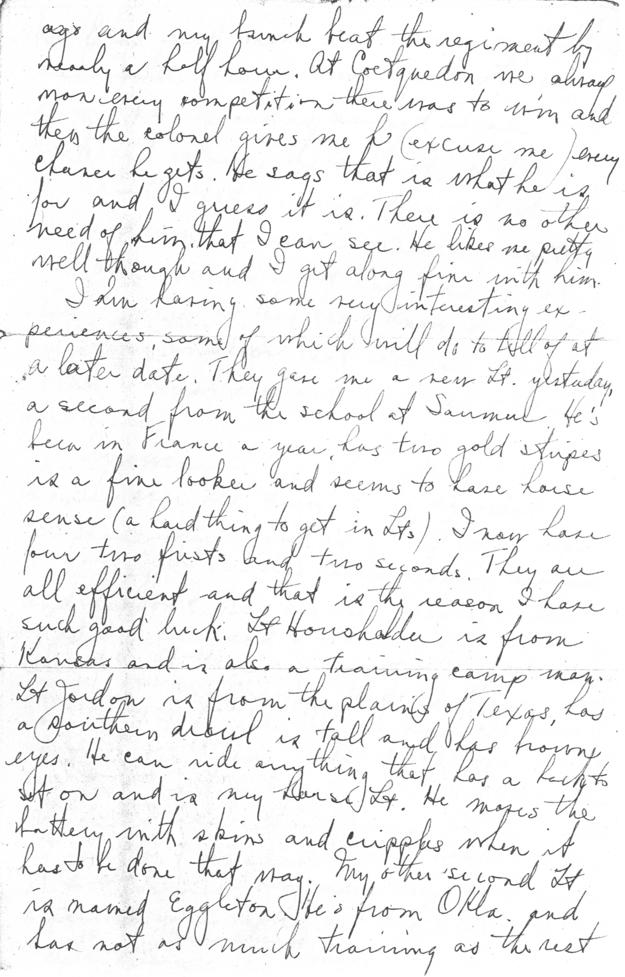 ago and my bunch beat the regiment by
nearly a half hour. At Coetquedon we always
won every competition there was to win and
then the colonel gives me h (excuse me) every
chance he gets. He says that is what he is
for and I guess it is. There is no other
need of him that I can see. He likes me pretty
well though and I get along fine with him.
I am having some very interesting ex-
periences, some of which will do to tell of at
a later date. They gave me a new Lt. yesterday,
a second from the school at Saumur. He's
been in France a year, has two gold stripes
is a fine looker and seems to have horse
sense (a hard thing to get in Lts). I now have
four two firsts and two seconds. They are
all efficient and that is the reason I have
such good luck. Lt Housholder is from
Kansas and is also a training camp man.
Lt Jordon is from the plains of Texas, has
a southern drawl is tall and has brown
eyes. He can ride anything that has a back to
sit on and is my horse Lt. He moves the
battery with skins and cripples when it
has to be done that way. My other second Lt
is named Eggleton He's from Okla. and
has not as much training as the rest